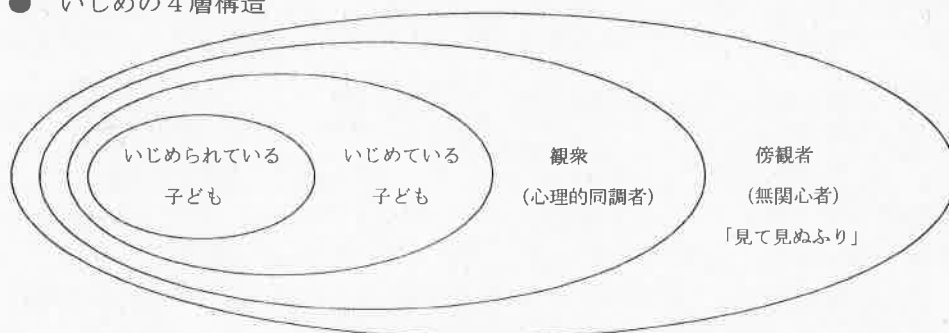 ● いじめの4層構造
いじめられている
子ども
いじめている
子ども
観衆
(心理的同調者)
傍観者
(無関心者)
「見て見ぬふり」